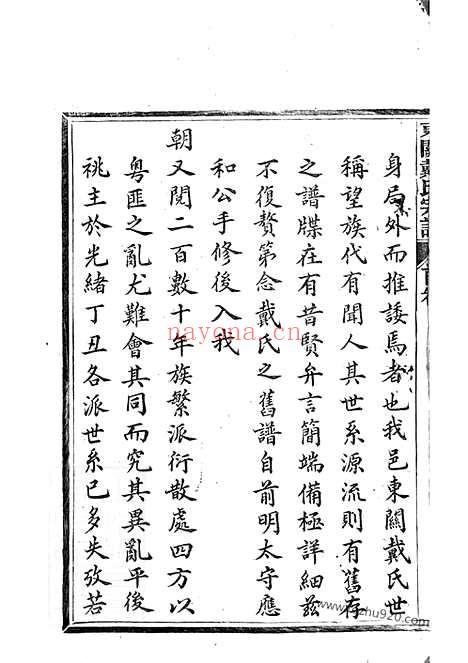 東關戴氏宗譜
身局外而推諉焉者也我邑東關戴氏世
稱望族代有聞人其世系源流則有舊存
之譜牒在有昔賢弁言簡端備極詳細茲
不復贅第念戴氏之舊譜自前明太守應
和公手修後入我
朝又閱二百數十年族繁派衍散處四方以
粵匪之亂尤難會其同而究其異亂平後
祧主於光緒丁丑各派世系已多失攷若
nayona.cn
zhu920.com